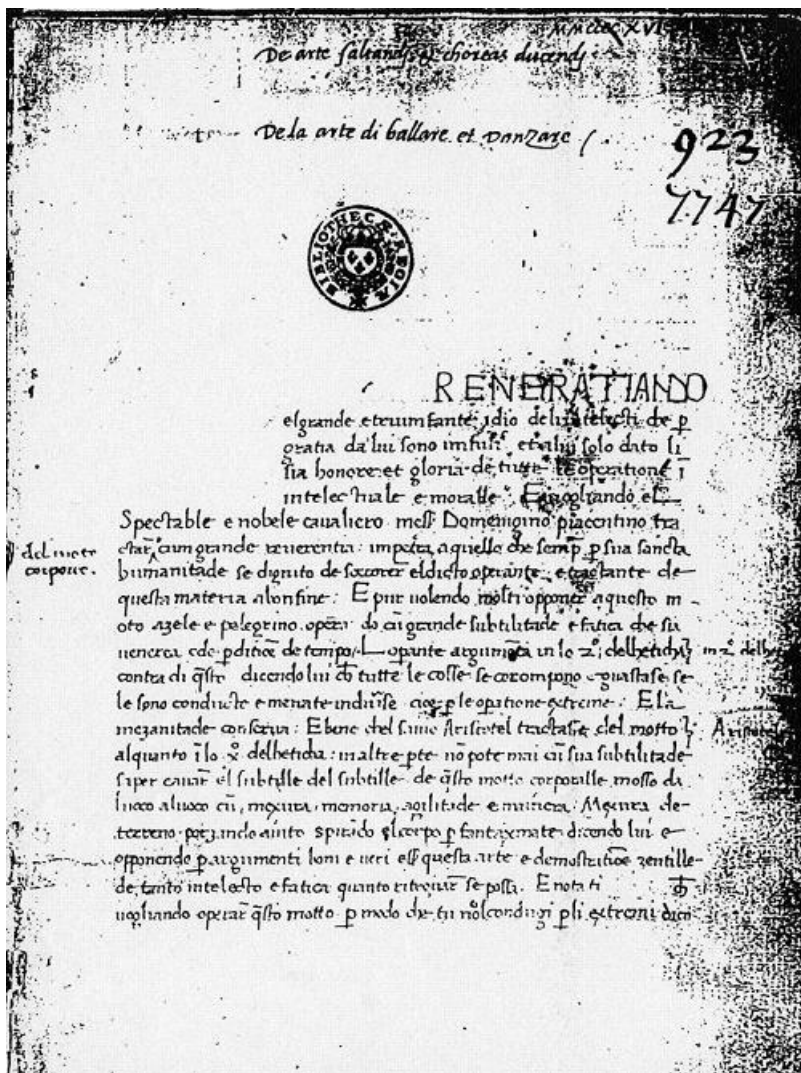 De arte saltandj & choreas ducendj
De la arte di ballare et danzare
923
7747
BIBLIOTHECÆ REGIÆ
RENGRATIANDO
el grande e triumfante idio de li intelecti che p
gratia da lui sono infusi et a lui solo dato li
sia honore et gloria de tutte le operatione ī
intelectuale e moralle. E uogliando el
Spectable e nobele caualiero mess Domenigino piacentino tra
ctar cum grande reuerentia: impetra a quello che semp p sua sancta
del moto
corpore.
humanitade se dignito de soccorer el dicto operante e tractante de
questa materia a bon fine: E pur uolendo molti opponer a questo m
oto azele e pelegrino opera do cū grande subtilitade e fatica che sia
uenerea e de pditiōe de tempo. L opante argumēta in lo 2º delheticha
in 2º delhe
contra di q̄sto dicendo lui ch tutte le cosse se corompono e guastase se
le sono conducte e menate indiuise cioe p le opatione extreme: E la
mezanitade conserua: E bene chel sauio Aristotel tractasse del motto
Aristotel
alquanto ī lo Xº delheticha: in altre pte nō pote mai cū sua subtilitade
saper cauar el subtille del subtille de q̄sto motto corporalle mosso da
luoco a luoco cū mexura, memoria, agilitade e maniera: Mexura de
terreno porzando aiuto spirado el corpo p fantaxmate dicendo lui e
opponendo p argumenti boni e ueri ess questa arte e demostratiōe zentille
de tanto intelecto e fatica quanto ritrouar se possa. E nota ti
uogliando operar q̄sto motto p modo che tu nōl condugi p li extremi dico